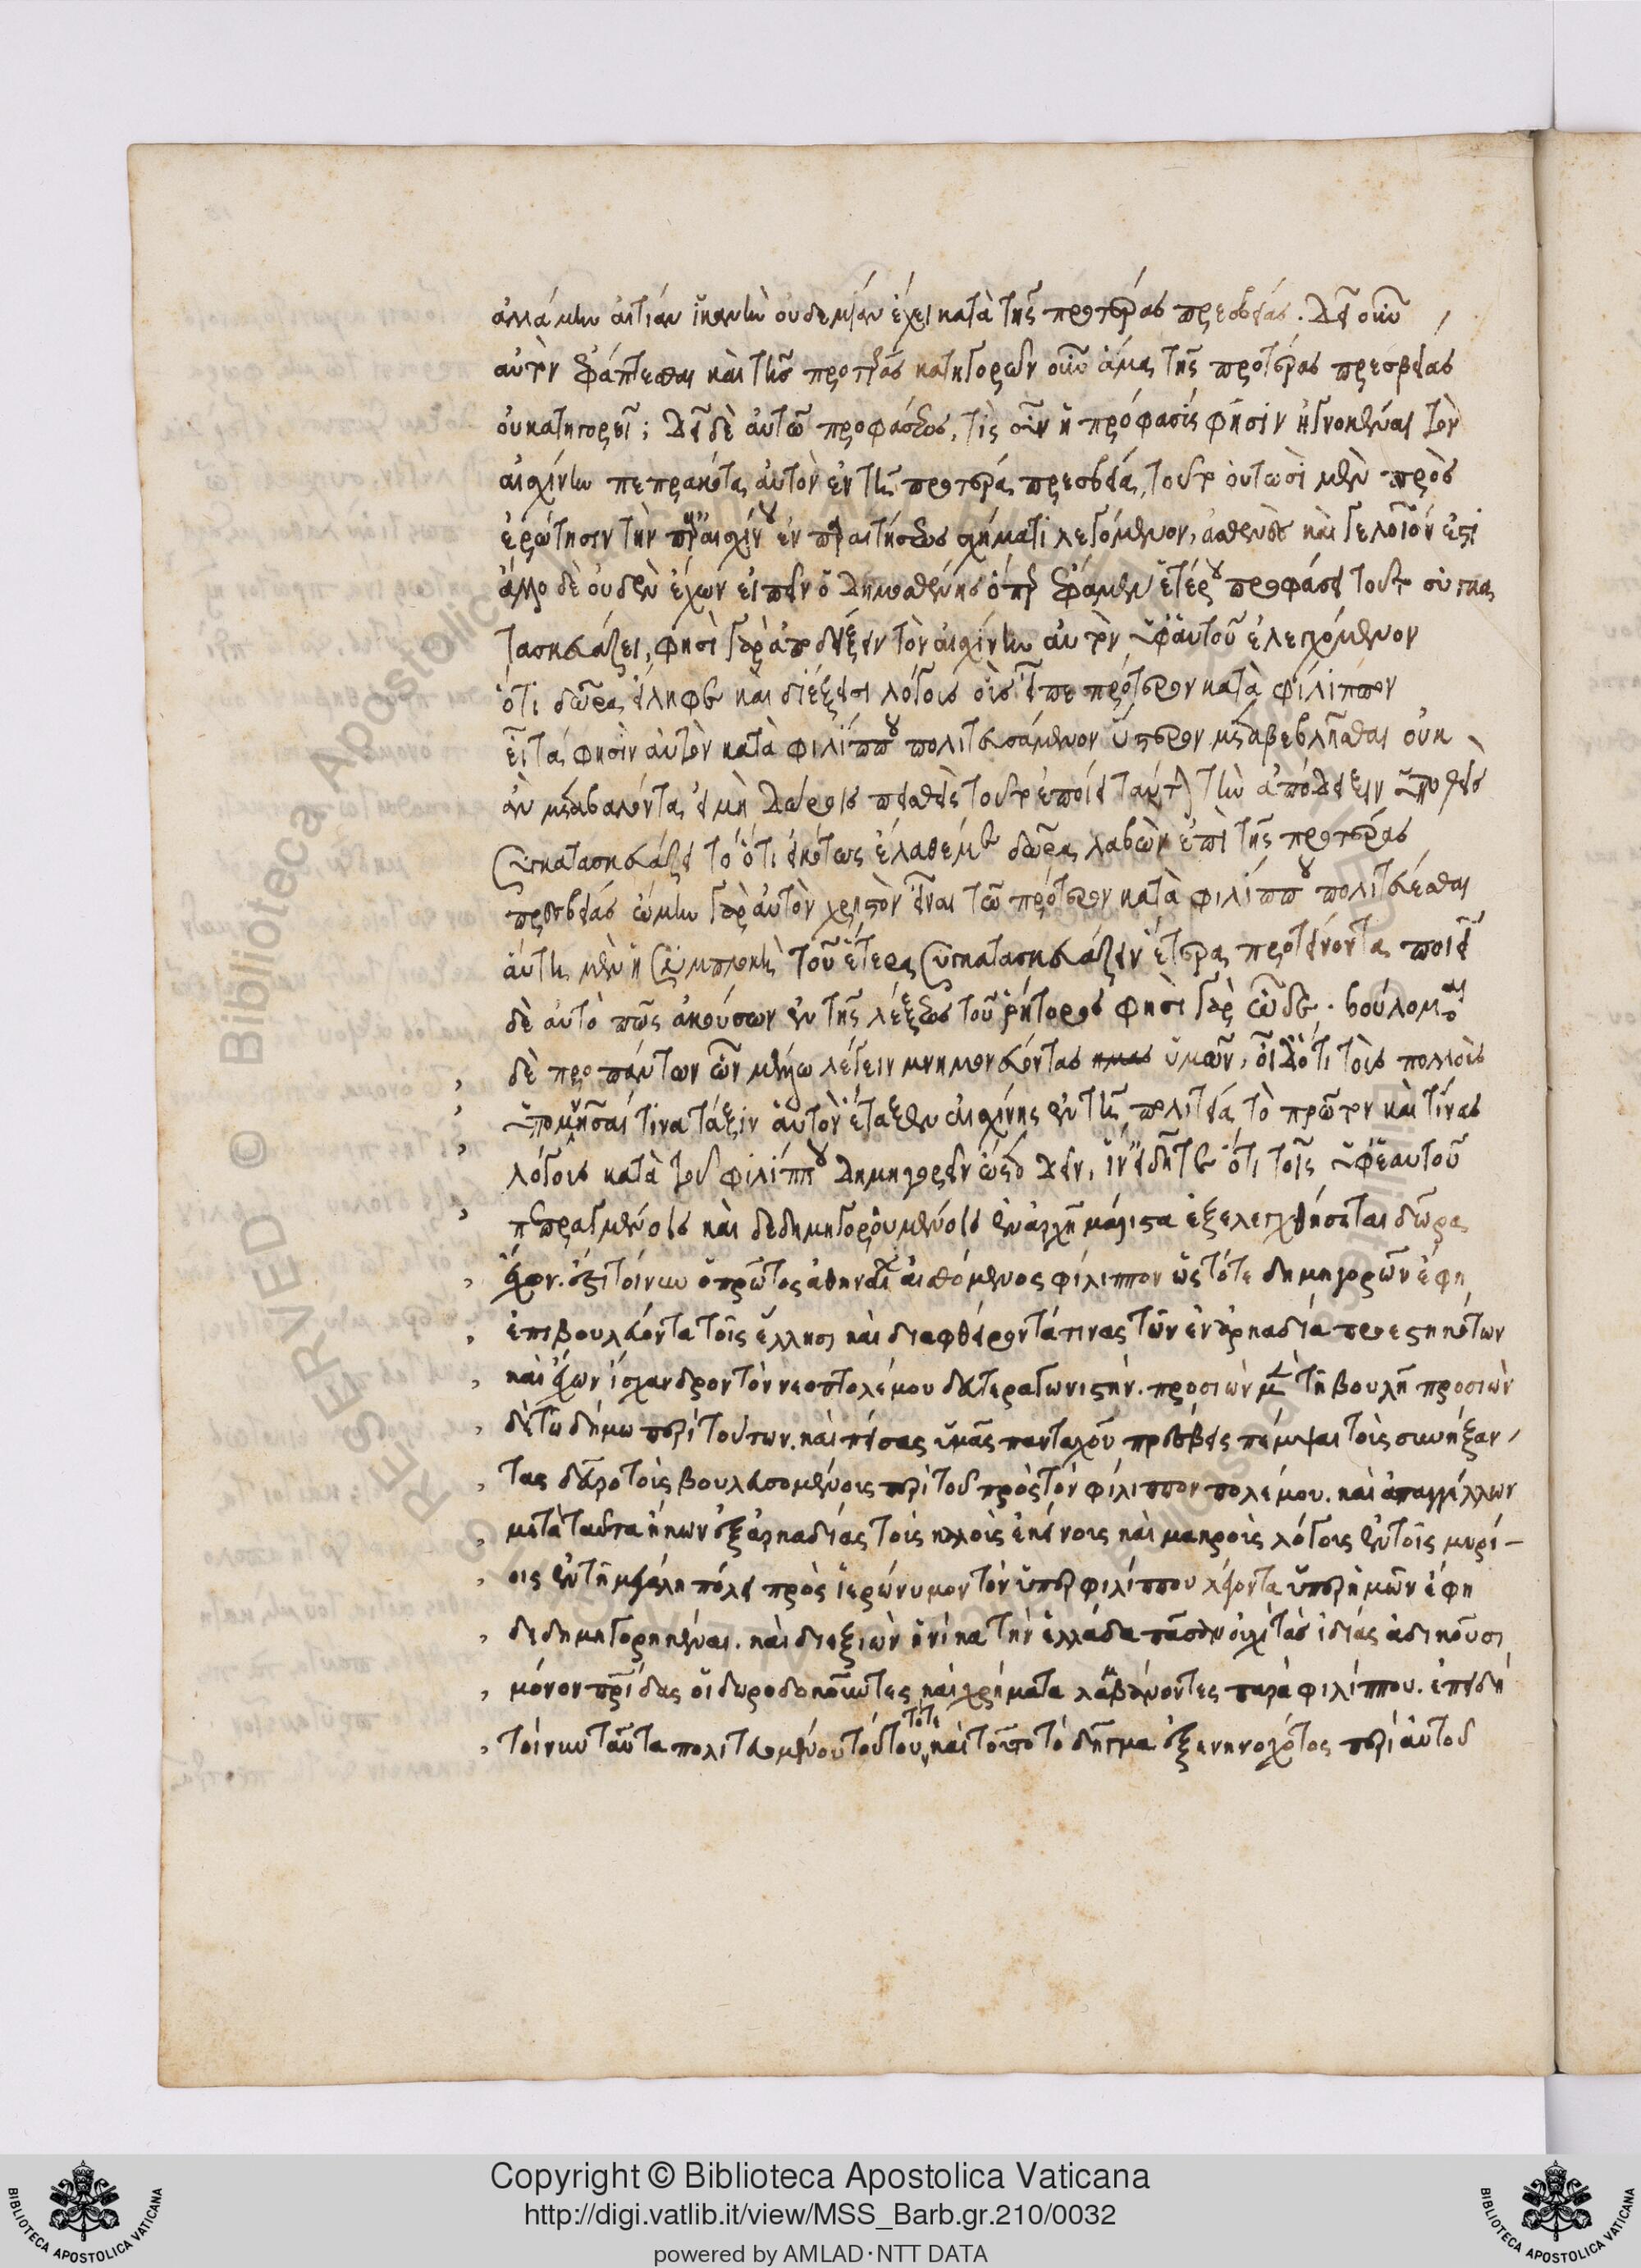 ἀλλὰ μὴν αἰτίαν ἱκανὴν οὐδεμίαν ἔχει κατὰ τῆς προτέρας πρεσβείας. δεῖ οὖν
αὐτὸν ἐφάπτεσθαι καὶ τῆς προτέρας κατηγορῶν οὖν ἅμα τῆς προτέρας πρεσβείας
οὐ κατηγορεῖ; δεῖ δὲ αὐτῶ προφάσεως, τίς οὖν ἡ πρόφασις φησὶν ἠγνοηκέναι τὸν
αἰσχίνην πεπρακότα αὐτὸν ἐν τῆ προτέρα πρεσβεία, τοῦτο οὑτωσὶ μὲν πρὸς
ἐρώτησιν τὴν παρ' αἰσχίνου ἐν παραιτήσεως σχήματι λεγόμενον, ἀσθενὲς καὶ γελοῖόν ἐστι
ἄλλο δὲ οὐδὲν ἔχων εἰπεῖν ὁ δημοσθένης ὅπερ ἔφαμεν ἑτέρου προφάσει τοῦτο συγκα
τασκευάζει, φησὶ γὰρ ἀποδείξειν τὸν αἰσχίνην αὐτὸν ὑφ' αὑτοῦ ἐλεγχόμενον
ὅτι δῶρα εἴληφε καὶ διέξεισι λόγους οὓς εἶπε πρότερον κατὰ φίλιππον
εἶτά φησιν αὐτὸν κατὰ φιλίππου πολιτευσάμενον ὕστερον μεταβεβλῆσθαι οὐκ
ἂν μεταβαλόντα εἰ μὴ δώροις πεισθεὶς τοῦτο ἐποίει ταύτη τὴν ἀπόδειξιν
συγκατασκευάζει τὸ ὅτι εἰκότως ἔλαθέ με δῶρα λαβὼν ἐπὶ τῆς προτέρας
πρεσβείας ᾤμην γὰρ αὐτὸν χρηστὸν εἶναι τῶ πρότερον κατὰ φιλίππου πολιτεύεσθαι
αὕτη μὲν ἡ συμπλοκὴ τοῦ ἕτερα συγκατασκευάζειν ἕτερα προτείνοντα ποιεῖ
δὲ αὐτὸ πῶς ἀκούσων ἐκ τῆς λέξεως τοῦ ῥήτορος φησὶ γὰρ ὧδε. βούλομαι
, δὲ πρὸ πάντων ὧν μέλλω λέγειν μνημονεύοντας ὑμῶν, οἶδ' ὅτι τοὺς πολλοὺς
, ὑπομνῆσαι τίνα τάξιν αὑτὸν ἔταξεν αἰσχίνης ἐν τῆ πολιτεία τὸ πρῶτον καὶ τίνας
, λόγους κατὰ τοῦ φιλίππου δημηγορεῖν ὤετο δεῖν, ἵν' εἰδῆτε ὅτι τοῖς ὑφ' ἑαυτοῦ
, πεπραγμένοις καὶ δεδημηγορουμένοις ἐν ἀρχῆ μάλιστα ἐξελεγχθήσεται δῶρα
, ἔχων. ἔστι τοίνυν ὁ πρῶτος ἀθηναίων αἰσθόμενος φίλιππον ὡς τότε δημηγορῶν ἔφη
, ἐπιβουλεύοντα τοῖς ἕλλησι καὶ διαφθείροντά τινας τῶν ἐν ἀρκαδία προεστηκότων
, καὶ ἔχων ἴσχανδρον τὸν νεοπτολέμου δευτεραγωνιστὴν. προσιὼν μὲν τῆ βουλῆ προσιὼν
, δὲ τῶ δήμω περὶ τούτων. καὶ πείσας ὑμᾶς πανταχοῦ πρέσβεις πέμψαι τοὺς συνάξαν
, τας δεῦρο τοὺς βουλευσομένους περὶ τοῦ πρὸς τὸν φίλιππον πολέμου. καὶ ἀπαγγέλλων
, μετὰ ταῦτα ἥκων ἐξ ἀρκαδίας τοὺς καλοὺς ἐκείνους καὶ μακροὺς λόγους ἐν τοῖς μυρί-
, οις ἐν τῆ μεγάλη πόλει πρὸς ἱερώνυμον τὸν ὑπὲρ φιλίππου λέγοντα ὑπὲρ ἡμῶν ἔφη
, δεδημηγορηκέναι. καὶ διεξιὼν ἡνίκα τὴν ἑλλάδα πᾶσαν οὐχὶ τὰς ἰδίας ἀδικοῦσι
, μόνον πατρίδας οἱ δωροδοκοῦντες καὶ χρήματα λαμβάνοντες παρὰ φιλίππου. ἐπειδὴ
, τοίνυν ταῦτα πολιτευομένου τούτου τότε καὶ τοῦτο τὸ δεῖγμα ἐξενηνοχότος περὶ αὑτοῦ
Copyright © Biblioteca Apostolica Vaticana
http://digi.vatlib.it/view/MSS_Barb.gr.210/0032
powered by AMLAD·NTT DATA